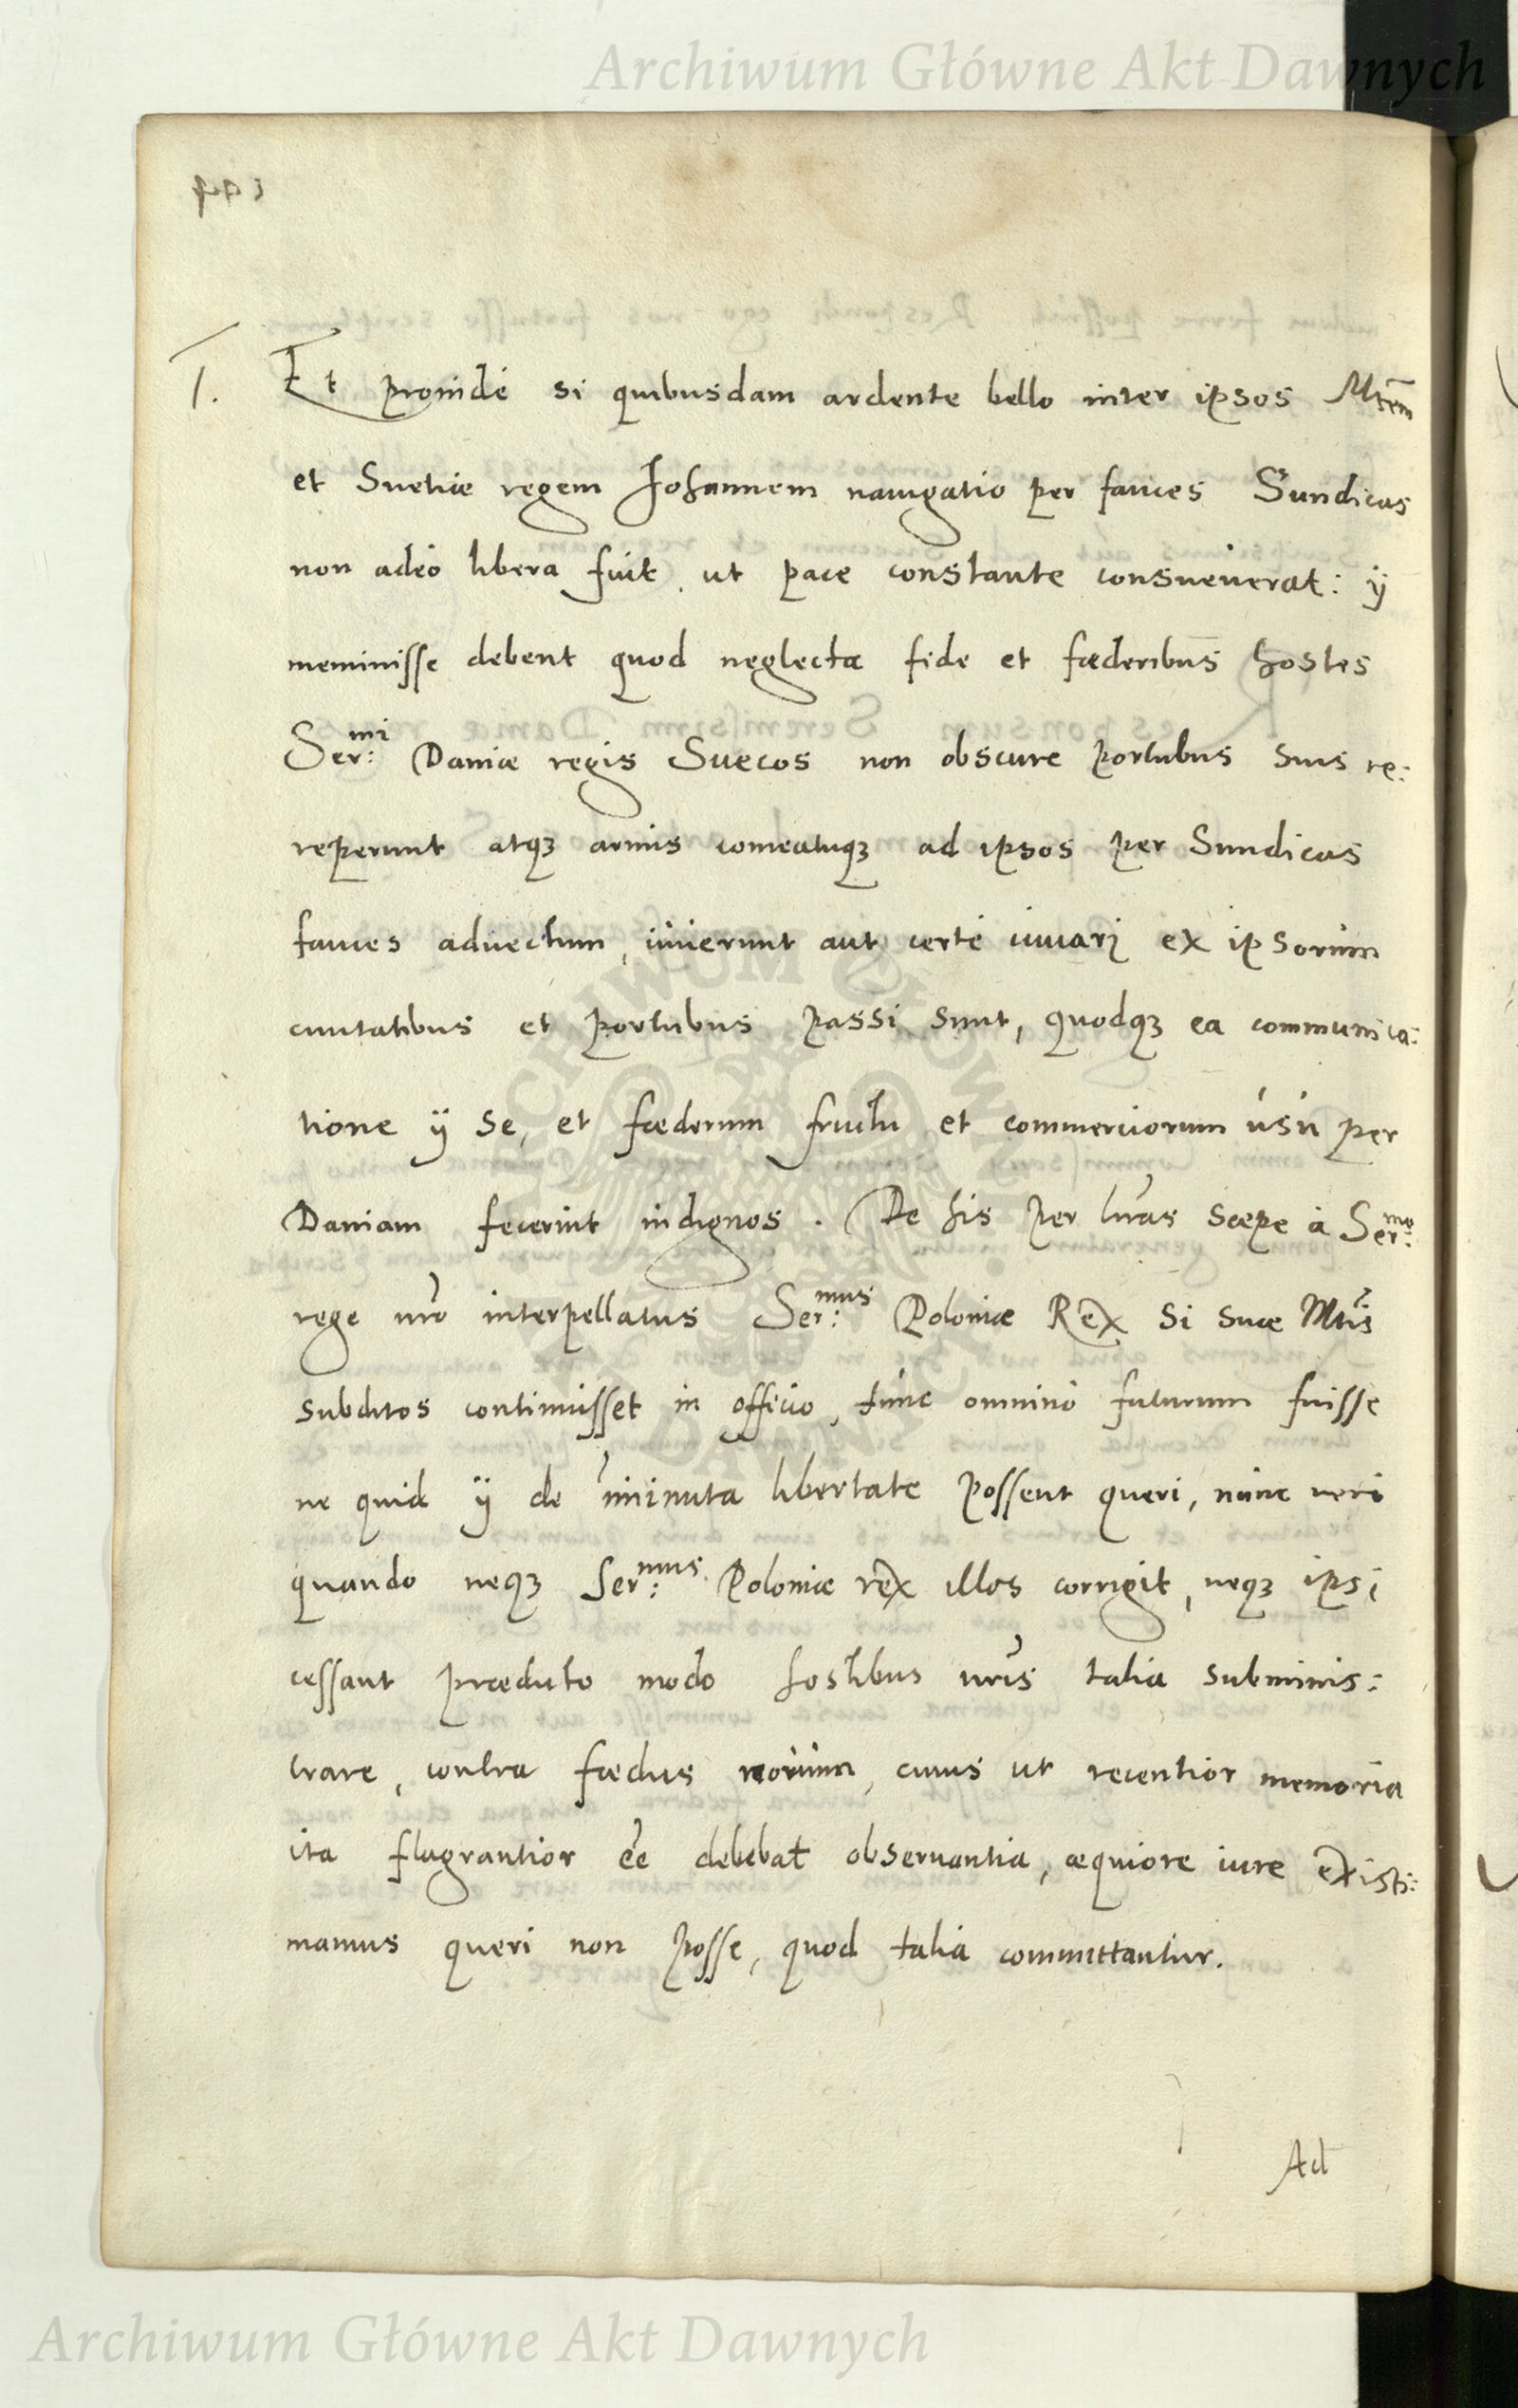 Archiwum Główne Akt Dawnych
1. Et proinde si quibusdam ardente bello inter ipsos Mtem
et Suetiæ regem Johannem nauigatio per fauces Sundicas
non adeò libera fuit, ut pace constante consueuerat: ij
meminisse debent quod neglecta fide et fœderibus hostes
Ser:mi Daniæ regis Suecos non obscure portubus suis re:
reperunt atq3 armis comeatuq3 ad ipsos per Sundicas
fauces aduectum, iuuerunt aut certè iuuari ex ipsorum
ciuitatibus et portubus passi sunt, quodq3 ea communica:
tione ij se, et fœderum fructu et commerciorum usu per
Daniam fecerint indignos. De his per lras sæpe à Ser:mo
rege nro interpellatus Ser:mus Poloniæ Rex si suæ Mtis
subditos continuisset in officio, tunc omninò futurum fuisse
ne quid ij de iminuta libertate possent queri, nunc verò
quando neq3 Ser:mus Poloniæ rex illos corrigit, neq3 ipsi
cessant prædicto modo hostibus nris talia subminis:
trare, contra fœdus nouum, cuius ut recentior memoria
ita flagrantior ee debebat obseruantia, æquiore iure existi:
mamus queri non posse, quod talia committantur.
Ad
Archiwum Główne Akt Dawnych